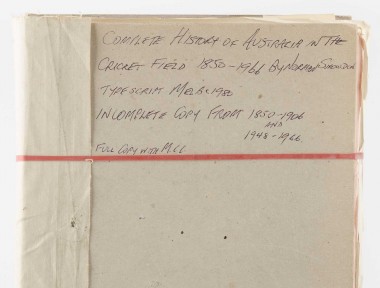 COMPLETE HISTORY OF AUSTRALIA IN THE
CRICKET FIELD 1850-1966 BY NORMAN SOWDEN
TYPESCRIPT MELB. 1980
INCOMPLETE COPY FROM 1850-1906
AND
1948-1966
FULL COPY WITH M.C.C.